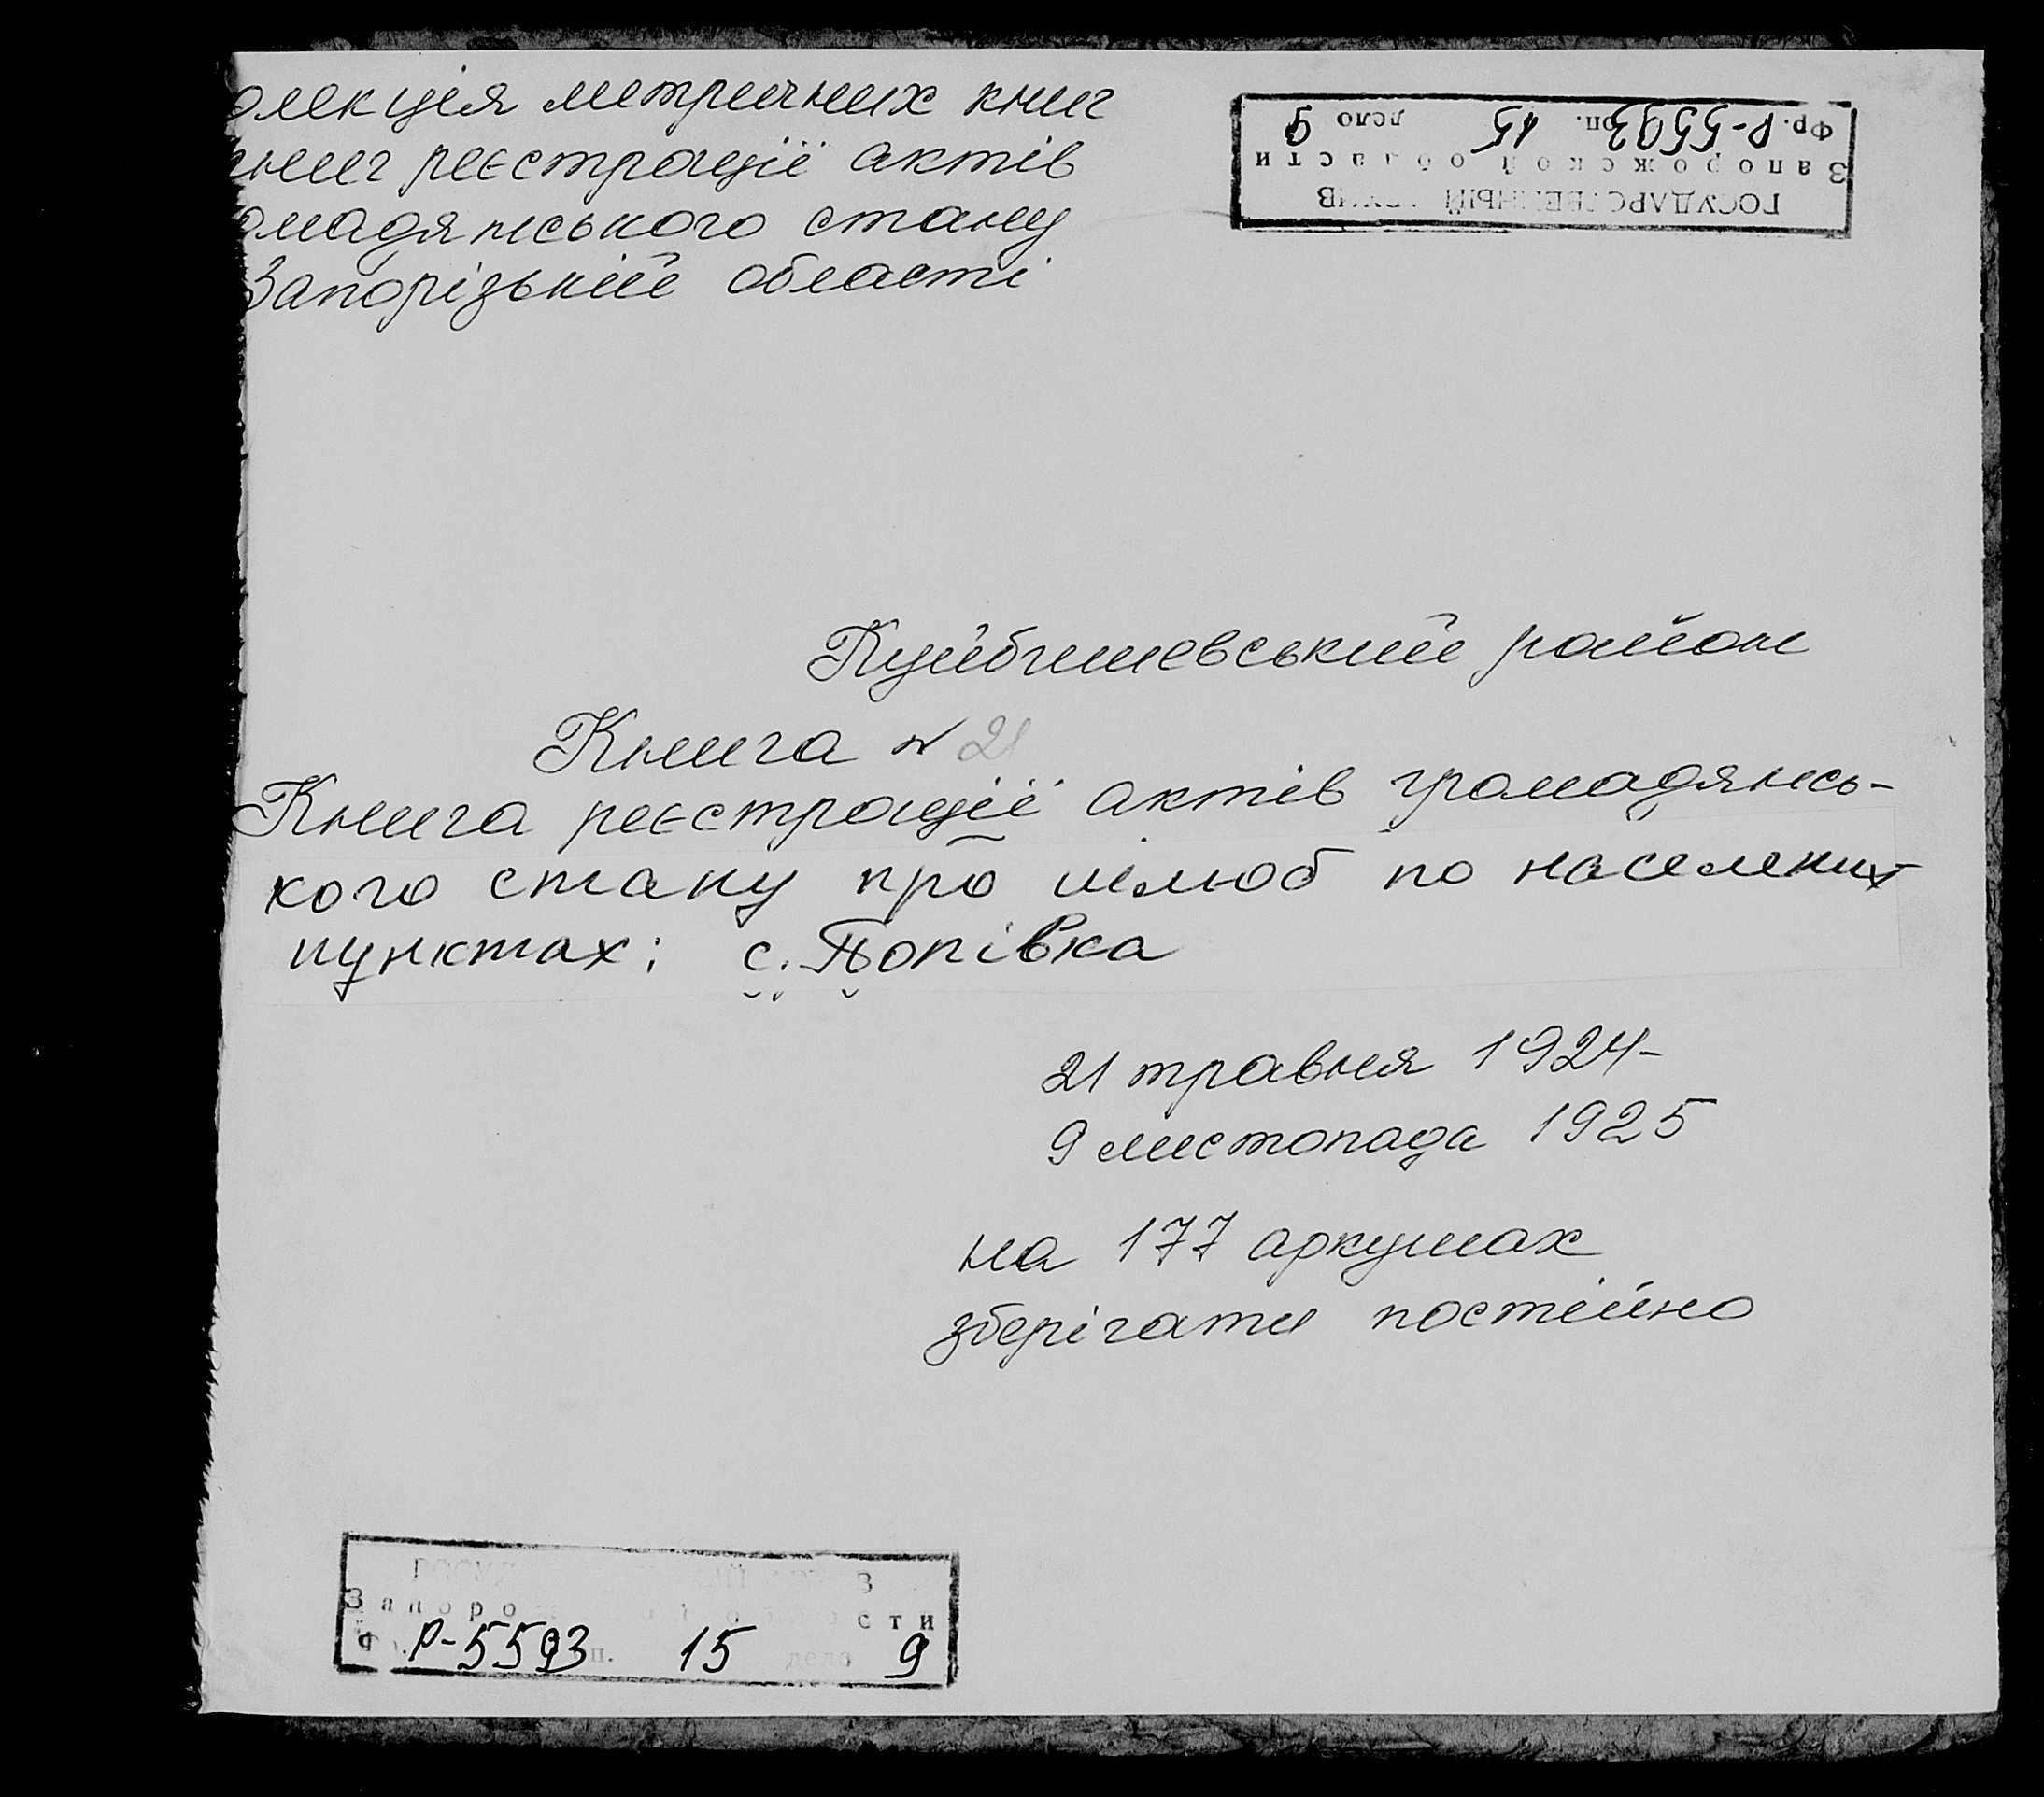 олекція метричних книг
книг реєстрації актів
омадянського стану
Запорізькій області
ГОСУДАРСТВЕННЫЙ АРХИВ
Запорожской области
Фр. Р-5593 оп. 15 дело 9
Куйбишевський район
Книга № 21
Книга реєстрації актів громадянсь-
кого стану про шлюб по населених
пунктах: с. Попівка
21 травня 1924-
9 листопада 1925
на 177 аркушах
зберігати постійно
Запорожской области
Р-5593 оп. 15 дело 9